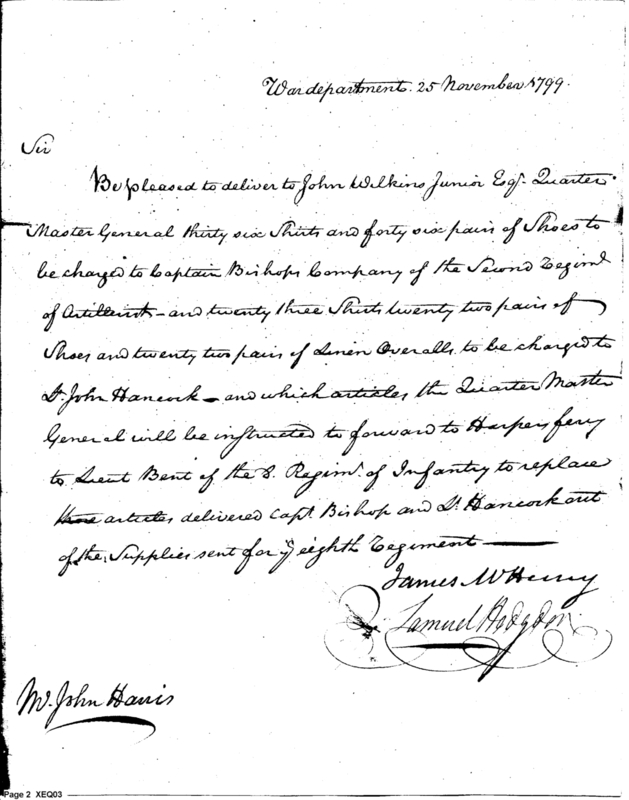 War department. 25 November 1799.
Sir
Be pleased to deliver to John Wilkins Junior Esqr. Quarter
Master General thirty six Shirts and forty six pairs of Shoes to
be charged to Captain Bishops Company of the Second Regimt.
of Artillerists – and twenty three Shirts twenty two pairs of
Shoes and twenty two pairs of Linen Overalls to be charged to
Lt. John Hancock – and which articles the Quarter Master
General will be instructed to forward to Harpers ferry
to Lieut Bent of the 8. Regimt. of Infantry to replace
articles delivered Capt. Bishop and Lt. Hancock out
of the Supplies sent for ye eighth Regiment
James McHenry
Samuel Hodgdon
Mr. John Harris
Page 2 XEQ03